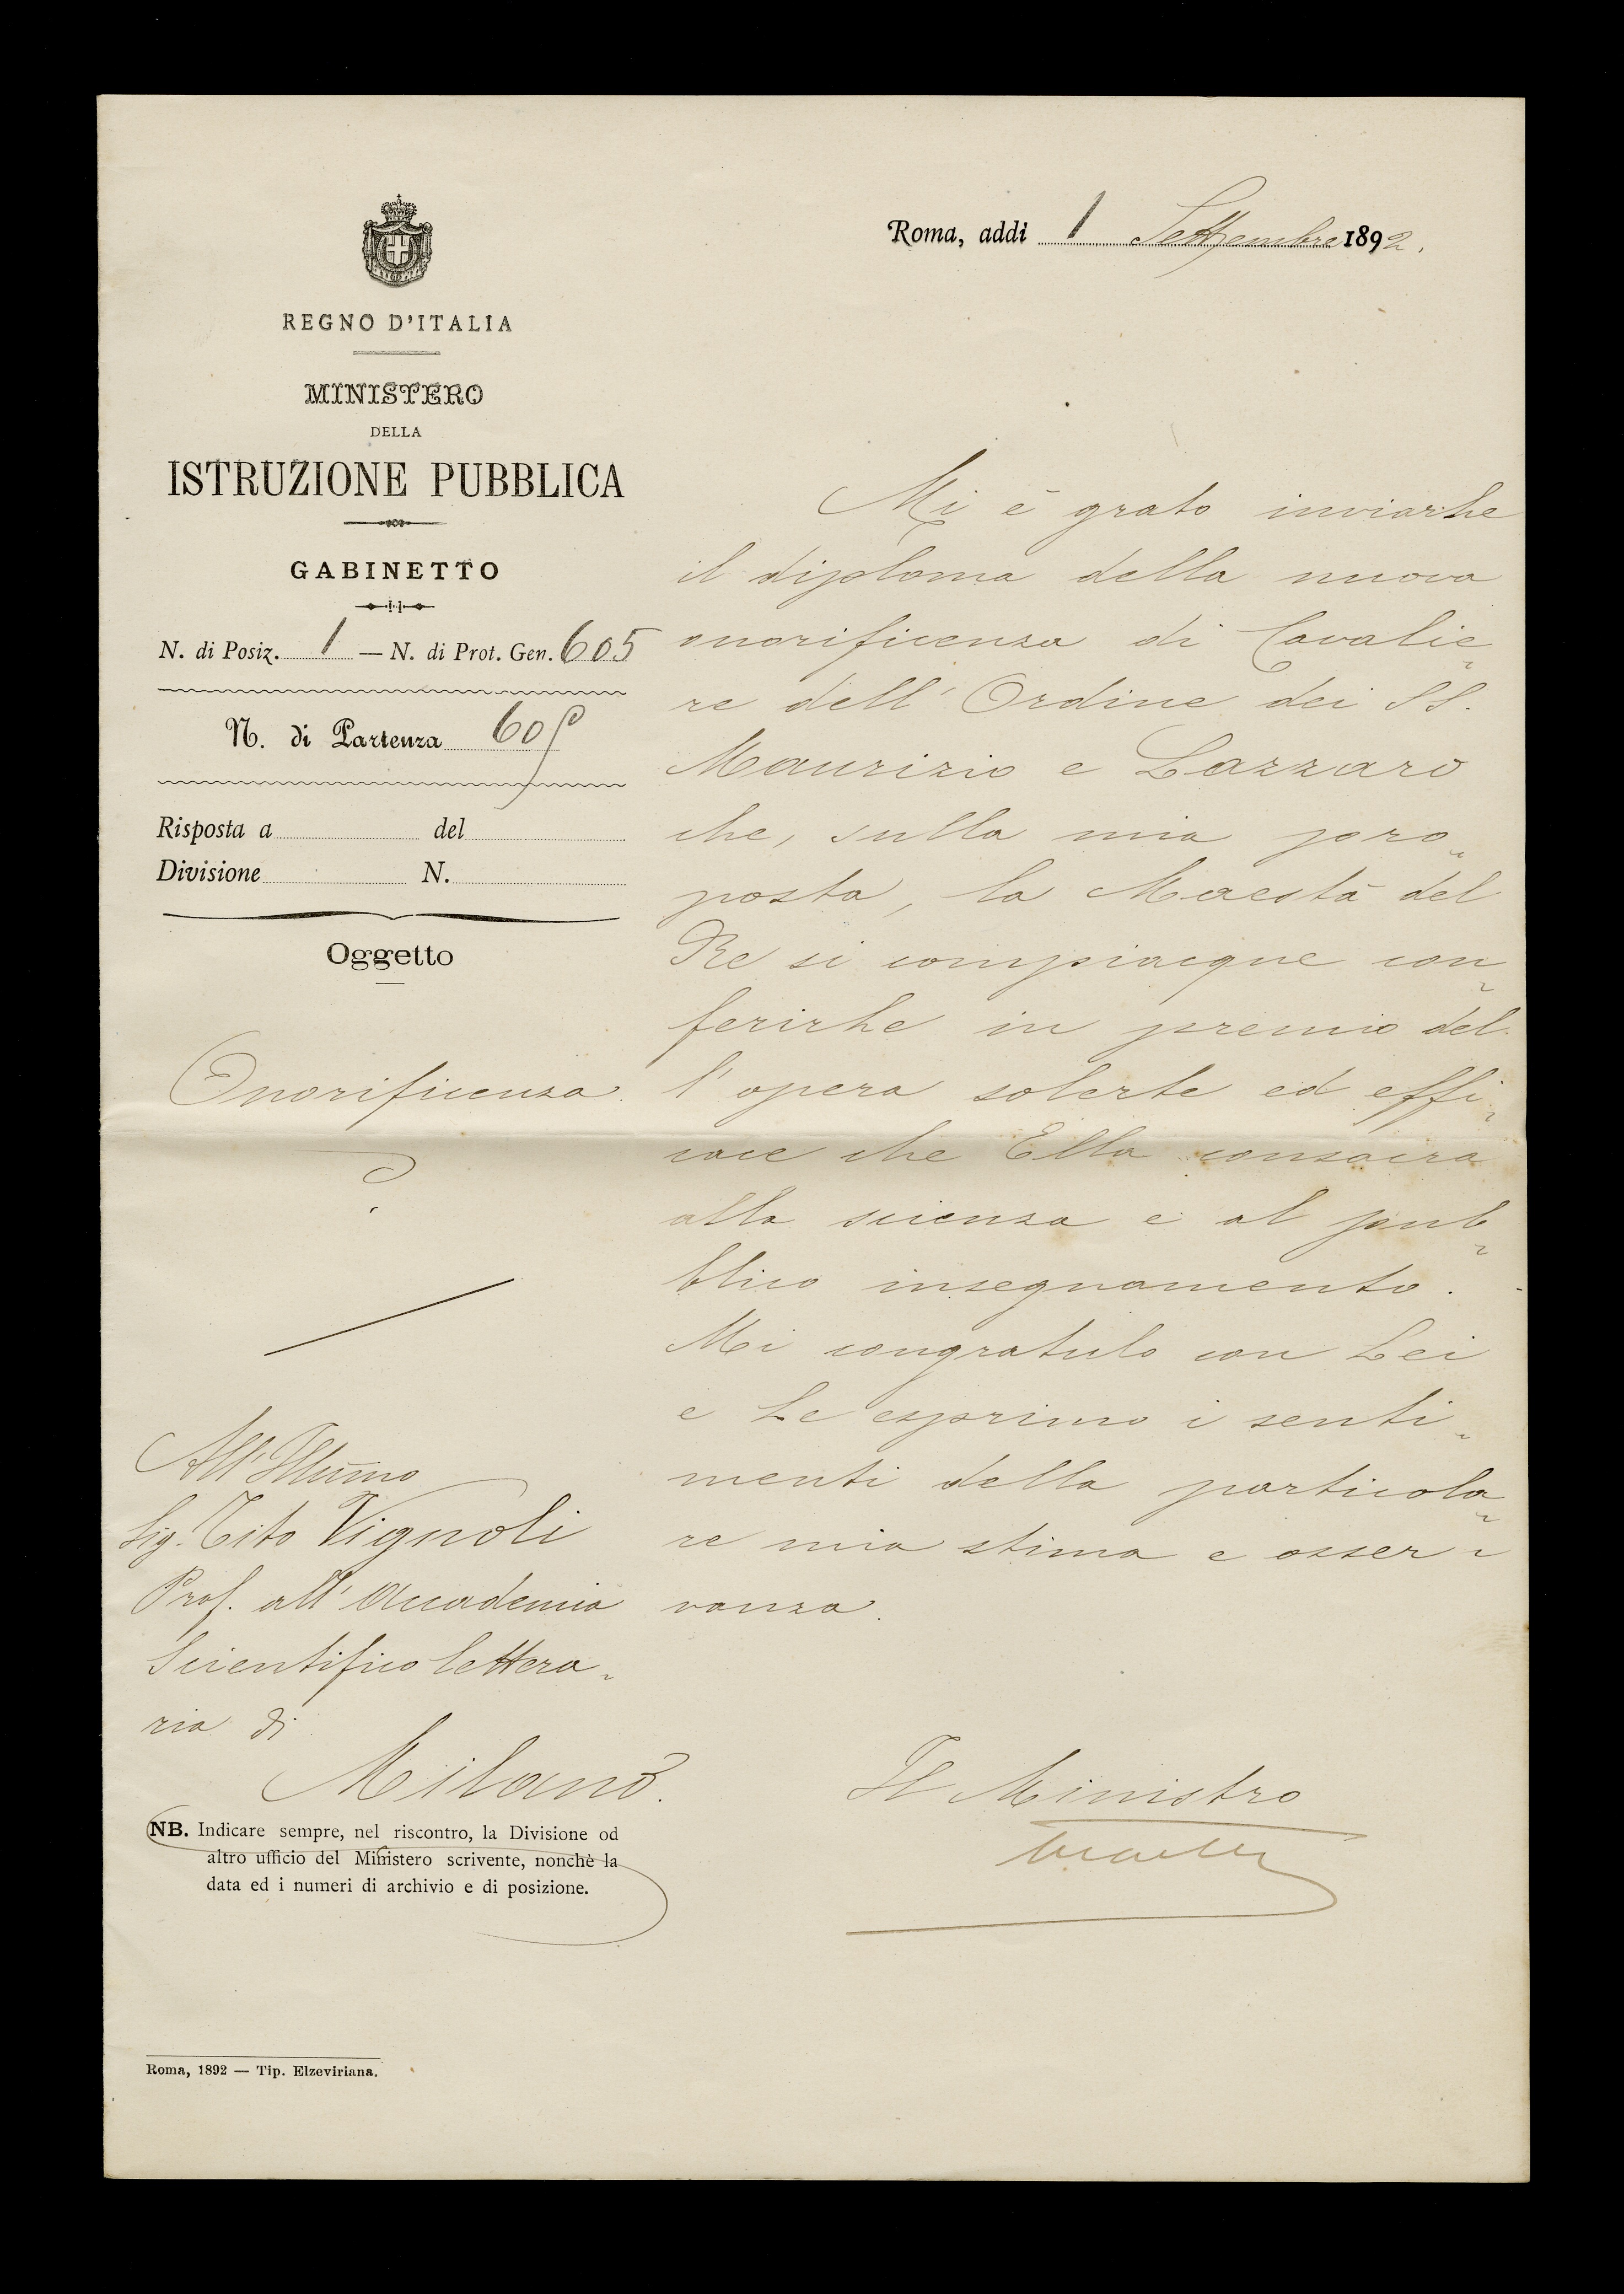 REGNO D'ITALIA
MINISTERO
DELLA
ISTRUZIONE PUBBLICA
GABINETTO
N. di Posiz. 1 — N. di Prot. Gen. 605
N. di Partenza 605
Risposta a del
Divisione N.
Oggetto
Onorificenza.
All'Illũmo
Sig. Tito Vignoli
Prof. all'Accademia
Scientifico lettera-
ria di
Milano.
NB. Indicare sempre, nel riscontro, la Divisione od
altro ufficio del Ministero scrivente, nonchè la
data ed i numeri di archivio e di posizione.
Roma, 1892 — Tip. Elzeviriana.
Roma, addì 1 Settembre 1892.
Mi è grato inviarle
il diploma della nuova
onorificenza di Cavalie-
re dell'Ordine dei SS.
Maurizio e Lazzaro
che, sulla mia pro-
posta, la Maestà del
Re si compiacque con-
ferirle in premio del-
l'opera solerte ed effi-
cace che Ella consacra
alla scienza e al pub-
blico insegnamento.
Mi congratulo con Lei
e Le esprimo i senti-
menti della particola-
re mia stima e osser-
vanza.
Il Ministro